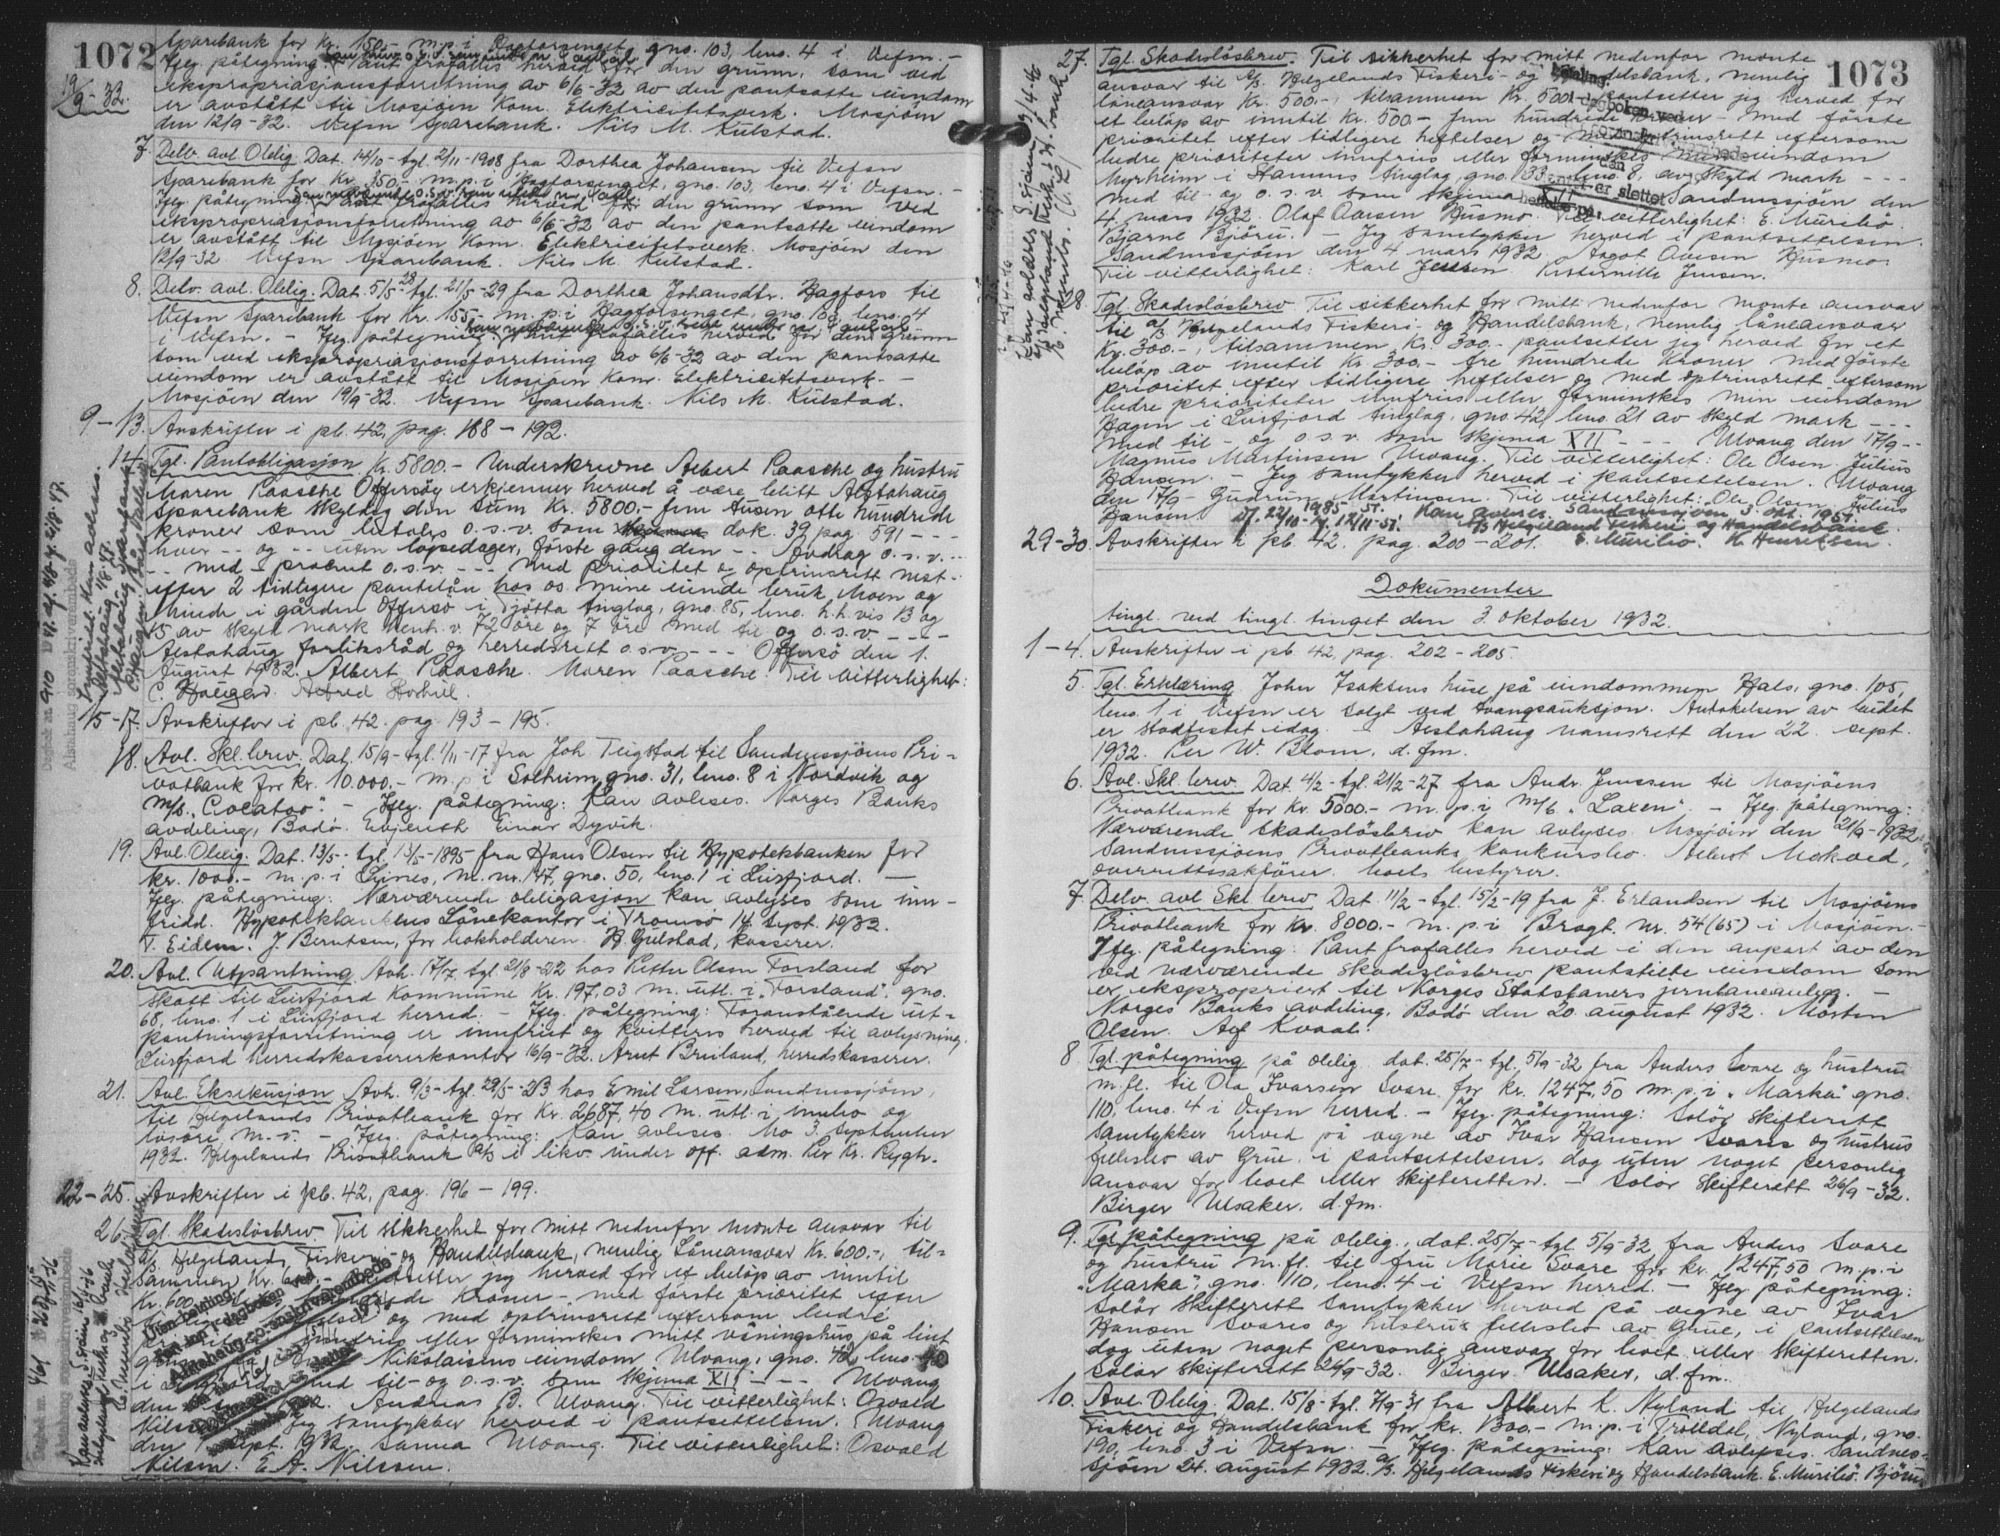 1072
19/9-32.
Sparebank for Kr. 150.- m.p.i Hagforsenget, gno. 103, bno. 4 i Vefsn. -
Iflg. påtegning: Pant frafalles herved for den grunn, som ved
ekspropriasjonsforretning av 6/6-32 av den pantsatte eiendom
er avstått til Mosjøen Kom. Elektricitetsverk. Mosjøen
den 12/9-32. Vefsn Sparebank. Nils M. Kulstad.
7. Delv. avl. Oblig. Dat. 14/10- tgl. 2/11-1908 fra Dorthea Johansen til Vefsn
Sparebank for Kr. 350.- m.p.i Hagforsenget, gno. 103, bno. 4 i Vefsn. -
Iflg. påtegning: Pant frafalles herved for den grunn som ved
ekspropriasjonsforretning av 6/6-32 av den pantsatte eiendom
er avstått til Mosjøen Kom. Elektricitetsverk. Mosjøen den
12/9-32. Vefsn Sparebank. Nils M. Kulstad.
8. Delv. avl. Oblig. Dat. 5/5-28 tgl. 21/5-29 fra Dorthea Johansdtr. Hagfors til
Vefsn Sparebank for Kr. 155.- m.p.i Hagforsenget, gno. 103, bno. 4
i Vefsn. - Iflg. påtegning: Pant frafalles herved for den grunn
som ved ekspropriasjonsforretning av 6/6-32 av den pantsatte
eiendom er avstått til Mosjøen Kom. Elektricitetsverk. -
Mosjøen den 19/9-32. Vefsn Sparebank. Nils M. Kulstad.
9-13. Avskrifter i pb. 42, pag. 188 - 192.
14. Tgl. Pantobligasjon Kr. 5800.- Underskrevne Albert Paasche og hustru
Maren Paasche Offersøy erkjenner herved å være blitt Alstahaug
Sparebank skyldig den sum Kr. 5800.- fem tusen otte hundrede
kroner som betales o.s.v. som dok. 39 pag. 591 - - -
hver - - og - - uten løpedager, første gang den - - Avdrag o.s.v. - -
- - med % procent o.s.v. - - - med prioritet og optrinsrett nest -
efter 2 tidligere pantelån hos os mine eiende bruk Moen og
Minde i gården Offersø i Tjøtta tinglag, gno. 85, bno. h.h.vis 13 og
15 av skyld mark henh.v. 72 øre og 7 øre med til og o.s.v. - - -
Alstahaug forliksråd og herredsrett o.s.v. - - - Offersø den 1.
August 1932. Albert Paasche. Maren Paasche. Til vitterlighet:
C. Astrid
15-17. Avskrifter i pb. 42. pag. 193 - 195.
18. Avl. Skl. brev. Dat. 15/9- tgl. 1/11-17 fra Joh. Teigstad til Sandnessjøens Pri-
vatbank for kr. 10.000.- m.p.i Solheim, gno. 31, bno. 8 i Nordvik og
m/b. "Cocatoo". - Iflg. påtegning: Kan avlyses. Norges Banks
avdeling, Bodø. Einar Dyvik.
19. Avl. Oblig. Dat. 13/5- tgl. 13/5-1895 fra Hans Olsen til Hypotekbanken for
kr. 1000.- m.p.i Leines, m.nr. 147, gno. 50, bno. 1 i Leirfjord. -
Iflg. påtegning: Nærværende obligasjon kan avlyses som inn-
fridd. Hypotekbankens Lånekontor i Tromsø 14. Sept. 1932.
T. Eidem. J. Berntsen, for bokholderen. H. Gulstad, kasserer.
20. Avl. Utpantning Avh. 17/7, tgl. 21/8-22 hos Petter Olsen Forsland for
skatt til Leirfjord Kommune Kr. 197,03 m. utl. i "Forsland", gno.
68, bno. 1 i Leirfjord herred. - Iflg. påtegning: Foranstående ut-
pantningsforretning er innfriet og kvitteres herved til avlysning.
Leirfjord herredskassererkontor 16/9-32. Arnt Breiland, herredskasserer.
21. Avl. Eksekusjon Avh. 9/3- tgl. 29/5-23 hos Emil Larsen, Sandnessjøen,
til Helgelands Privatbank for Kr. 2687,40 m. utl. i innbo og
løsøre m.v. - Iflg. påtegning: Kan avlyses. Mo 3. September
1932. Helgelands Privatbank A/S i likv. under off. adm. Per Kr. Rygh.
22-25. Avskrifter i pb. 42, pag. 196 - 199.
26. Tgl. Skadesløsbrev. Til sikkerhet for mitt nedenfor nevnte ansvar til
A/S Helgelands Fiskeri- og Handelsbank, nemlig Låneansvar Kr. 600.-, til-
sammen Kr. 600.- pantsetter jeg herved for et beløp av inntil
Kr. 600.- kroner - med første prioritet efter
og med optrinsrett eftersom bedre
eller forminskes mitt våningshus på leiet
Nikolaisens eiendom Ulvang, gno. 42, bno. 40
i Leirfjord med til- og o.s.v. som skjema XII - - - Ulvang
den 1932. Andreas B. Ulvang. Til vitterlighet: Osvald
Nilsen. Jeg samtykker herved i pantsettelsen. Ulvang
den sept. 1932. Sanna Ulvang. Til vitterlighet: Osvald
Nilsen. E. A. Nilssen.
1073
27. Tgl. Skadesløsbrev. Til sikkerhet for mitt nedenfor nevnte
ansvar til A/S Helgelands Fiskeri- og Handelsbank, nemlig
låneansvar Kr. 500.-, tilsammen Kr. 500.- pantsetter jeg herved for
et beløp av inntil Kr. 500.- fem hundrede kroner - med første
prioritet efter tidligere heftelser og med optrinsrett eftersom
bedre prioriteter innfries eller forminskes min eiendom
Myrheim i Stamnes tinglag, gno. 133 bno. 8, av skyld mark - - -
med til og o.s.v. som skjema XII Sandnessjøen den
4. mars 1932. Olaf Ovesen Husmo. Til vitterlighet: E. Mureliø.
Bjarne Bjøru. - Jeg samtykker herved i pantsettelsen.
Sandnessjøen den 4 mars 1932 Aagot Ovesen Husmo.
Til vitterlighet: Karl Jensen Petternille Jensen.
28. Tgl. Skadesløsbrev Til sikkerhet for mitt nedenfor nevnte ansvar
til A/S Helgelands Fiskeri- og Handelsbank, nemlig låneansvar
Kr. 300.-, tilsammen Kr. 300.- pantsetter jeg herved for et
beløp av inntil Kr. 300.- tre hundrede kroner med første
prioritet efter tidligere heftelser og med optrinsrett eftersom
bedre prioriteter innfries eller forminskes min eiendom
Hagen i Leirfjord tinglag, gno. 42, bno. 21 av skyld mark - - -
med til- og o.s.v. som skjema XII - - - Ulvang den 17/9 -
Magnus Martinsen Ulvang. Til vitterlighet: Ole Olsen. Julius
Hansen. - Jeg samtykker herved i pantsettelsen. Ulvang
den 17/9- Gudrun Martinsen. Til vitterlighet: Ole Olsen, Julius
Hansen. Kan avlyses. Sandnessjøen 3. okt. 1951.
A/S Helgeland Fiskeri og Handelsbank.
29-30. Avskrifter i pb. 42. pag. 200 - 201. E. Mureliø. H. Henriksen.
Dokumenter
tingl. ved tingl. tinget den 3. oktober 1932.
1-4. Avskrifter i pb. 42, pag. 202 - 205.
5. Tgl. Erklæring John Isaksens huse på eiendommen Hals, gno. 105,
bno. 1 i Vefsn er solgt ved tvangsauksjon. Antakelsen av budet
er stadfestet idag - Alstahaug namsrett den 22. sept.
1932. Per W. Blom, d.fm.
6. Avl. Skl. brev. Dat. 4/2- tgl. 21/2-27 fra Andr. Jenssen til Mosjøens
Privatbank for Kr. 5000.- m.p.i m/b "Laxen". - Iflg. påtegning:
Nærværende skadesløsbrev kan avlyses. Mosjøen den 21/9-1932
Sandnessjøens Privatbanks konkursbo. Albert Mokved,
overrettssakfører. boets bestyrer.
7. Delv. avl. Skl. brev. Dat. 11/2- tgl. 15/2-19 fra J. Erlandsen til Mosjøens
Privatbank for Kr. 8000.- m.p.i Bragt. nr. 54 (65) i Mosjøen. -
Iflg. påtegning: Pant frafalles herved i den anpart av den
ved nærværende skadesløsbrev pantstilte eiendom som
er ekspropriert til Norges Statsbaners jernbaneanlegg. -
Norges Banks avdeling, Bodø den 20. august 1932. Morten
Olsen. Alf Kvaal.
8. Tgl. påtegning på oblig. dat. 25/7- tgl. 5/9-32 fra Anders Svare og hustru
m.fl. til Ola Ivarsen Svare for kr. 1247,50 m.p.i "Marka" gno.
110, bno. 4 i Vefsn herred. - Iflg. påtegning: Solør Skifterett
samtykker herved på vegne av Ivar Hansen Svares og hustrus
fellesbo av Grue, i pantsettelsen, dog uten noget personlig
ansvar for boet eller skifteretten. - Solør Skifterett 26/9-32.
Birger Ulsaker. d.fm.
9. Tgl. påtegning på oblig., dat. 25/7- tgl. 5/9-32 fra Anders Svare
og hustru m.fl. til fru Marie Svare for kr. 1247,50 m.p.i
"Marka", gno. 110, bno. 4 i Vefsn herred. - Iflg. påtegning:
Solør Skifterett samtykker herved på vegne av Ivar
Hansen Svares og hustrus fellesbo av Grue, i pantsettelsen
dog uten noget personlig ansvar for boet eller skifteretten.
Solør skifterett 26/9-32. Birger Ulsaker, d.fm.
10. Avl. Oblig. Dat. 15/8- tgl. 7/9-31 fra Albert K. Nyland til Helgelands
Fiskeri og Handelsbank for kr. 1300.- m.p.i Trolldal, Nyland, gno.
190, bno. 3 i Vefsn. - Iflg. påtegning: Kan avlyses. Sandnes-
sjøen 24. august 1932. A/S Helgelands Fiskeri og Handelsbank. E. Mureliø. Bjøru